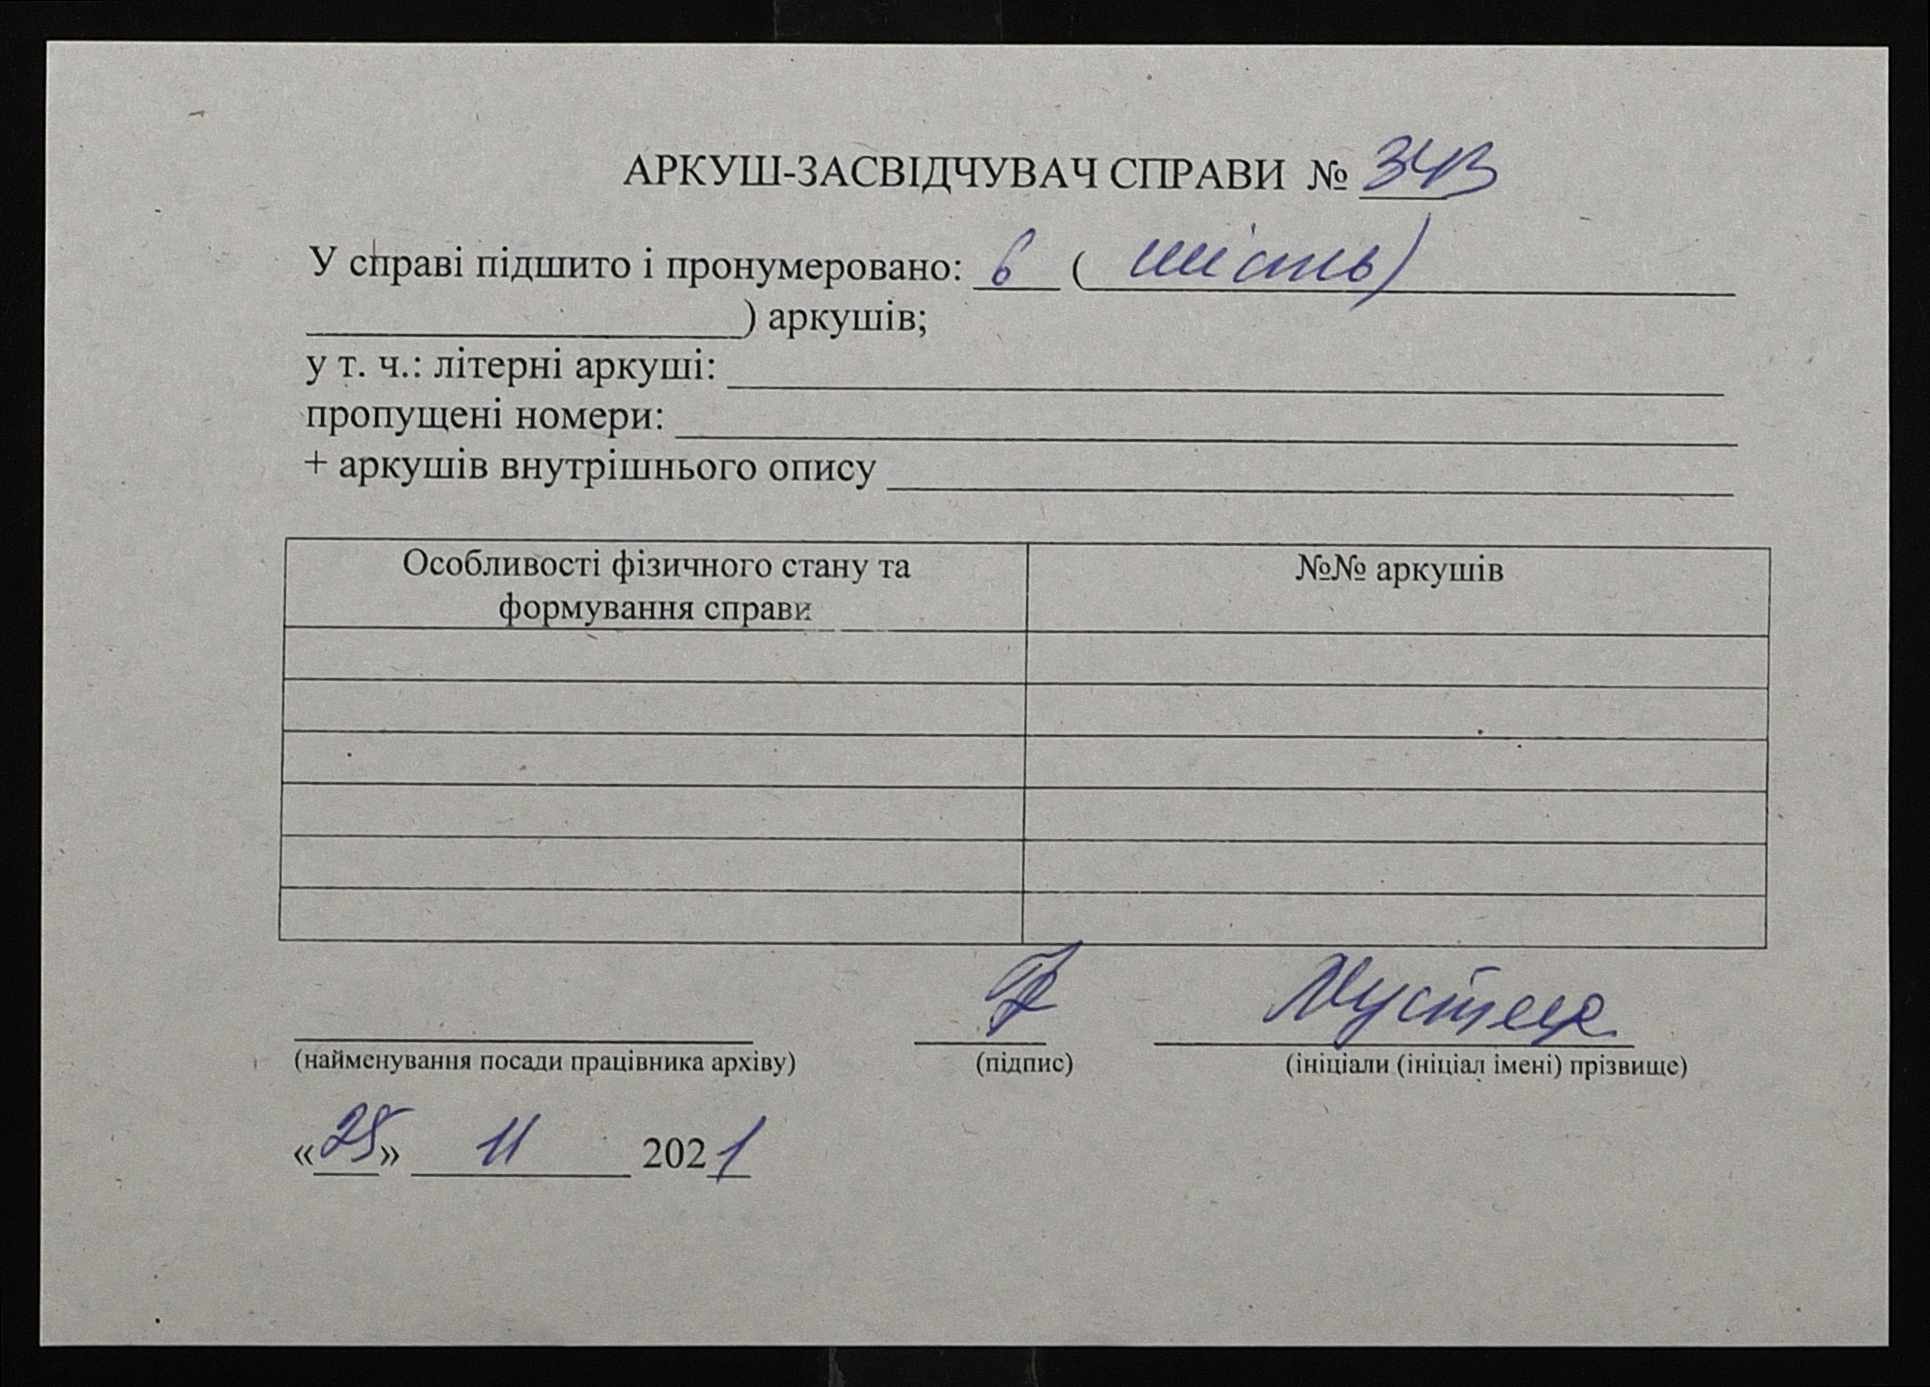 АРКУШ-ЗАСВІДЧУВАЧ СПРАВИ № 343
У справі підшито і пронумеровано: 6 ( шість)
) аркушів;
у т. ч.: літерні аркуші:
пропущені номери:
+ аркушів внутрішнього опису
Особливості фізичного стану та
формування справи
№№ аркушів
(найменування посади працівника архіву) (підпис) (ініціали (ініціал імені) прізвище)
«25» 11 2021